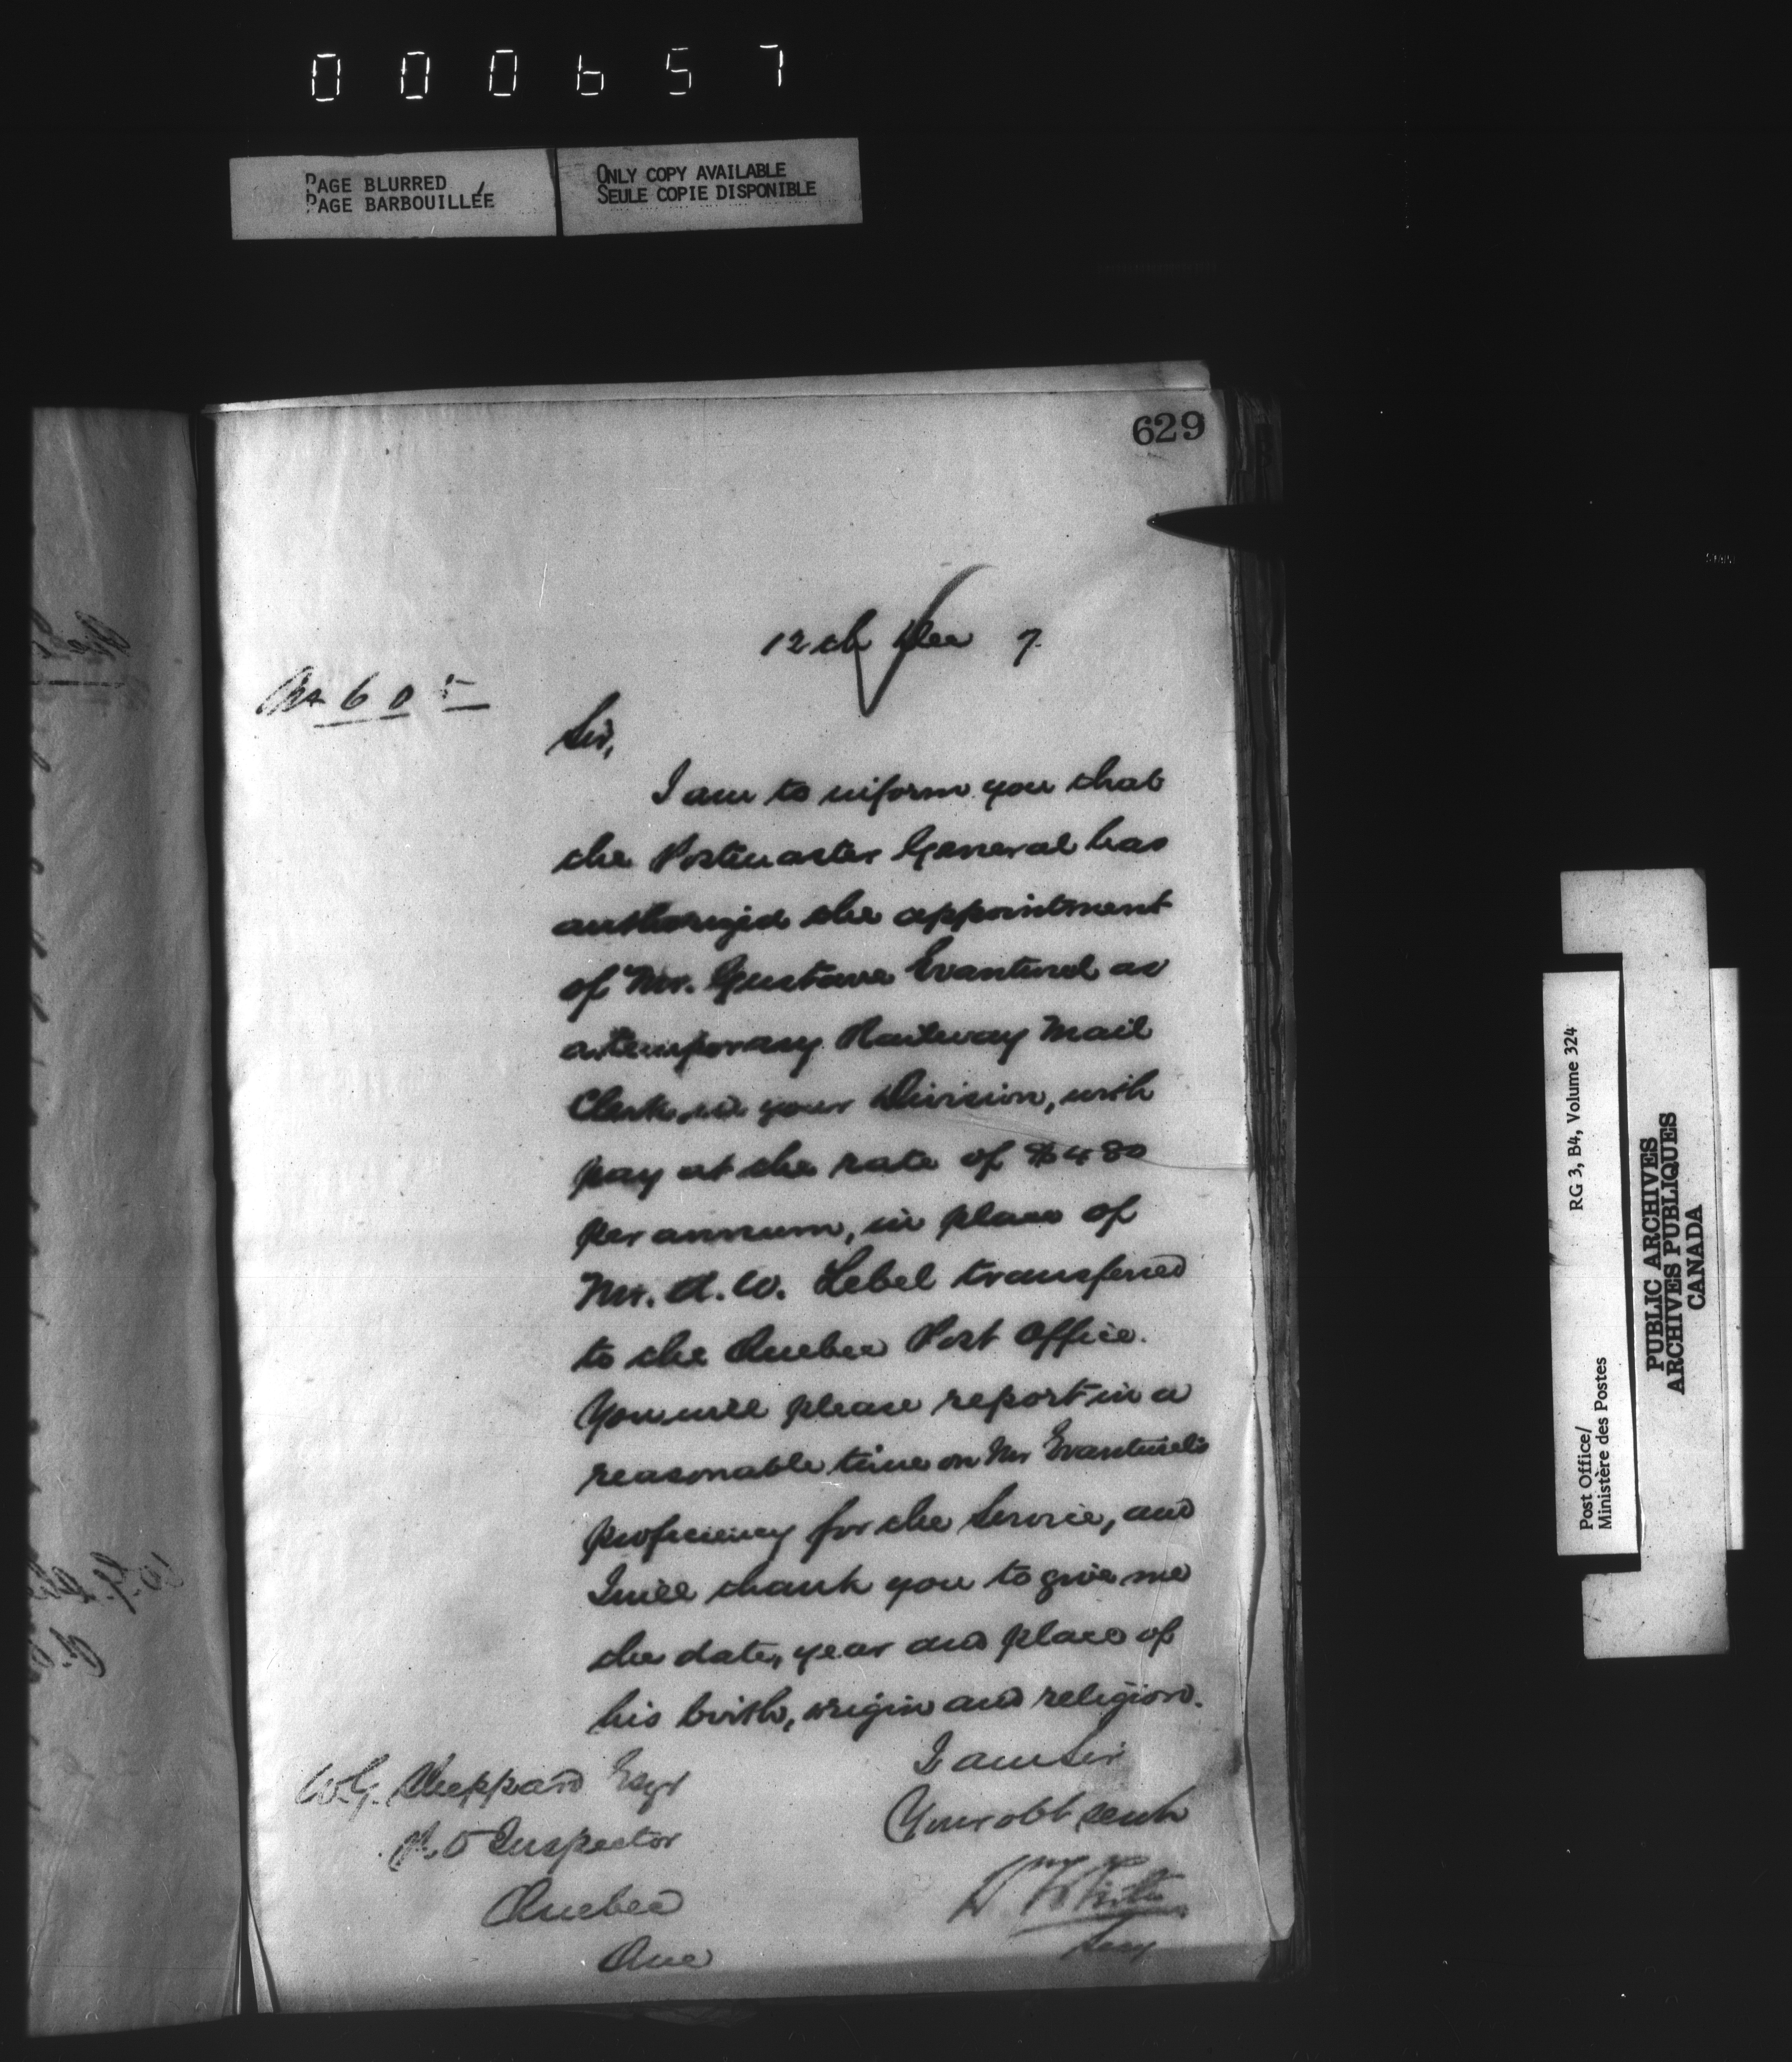 000657
PAGE BLURRED
PAGE BARBOUILLÉE
ONLY COPY AVAILABLE
SEULE COPIE DISPONIBLE
629
12th Dec 7.
605
Sir,
I am to inform you that
the Postmaster General has
authorized the appointment
of Mr. Gustave Evanturel as
a temporary Railway Mail
Clerk, in your Division, with
pay at the rate of $480
per annum, in place of
Mr. A. W. Lebel transferred
to the Quebec Post Office.
You will please report in a
reasonable time on Mr Evanturel's
proficiency for the Service, and
I will thank you to give me
the date, year and place of
his birth, origin and religion.
I am Sir
Your obt servt
Wm White
Secy
W.G. Sheppard Esqr
P.O Inspector
Quebec
Que
RG 3, B4, Volume 324
Post Office/
Ministère des Postes
PUBLIC ARCHIVES
ARCHIVES PUBLIQUES
CANADA